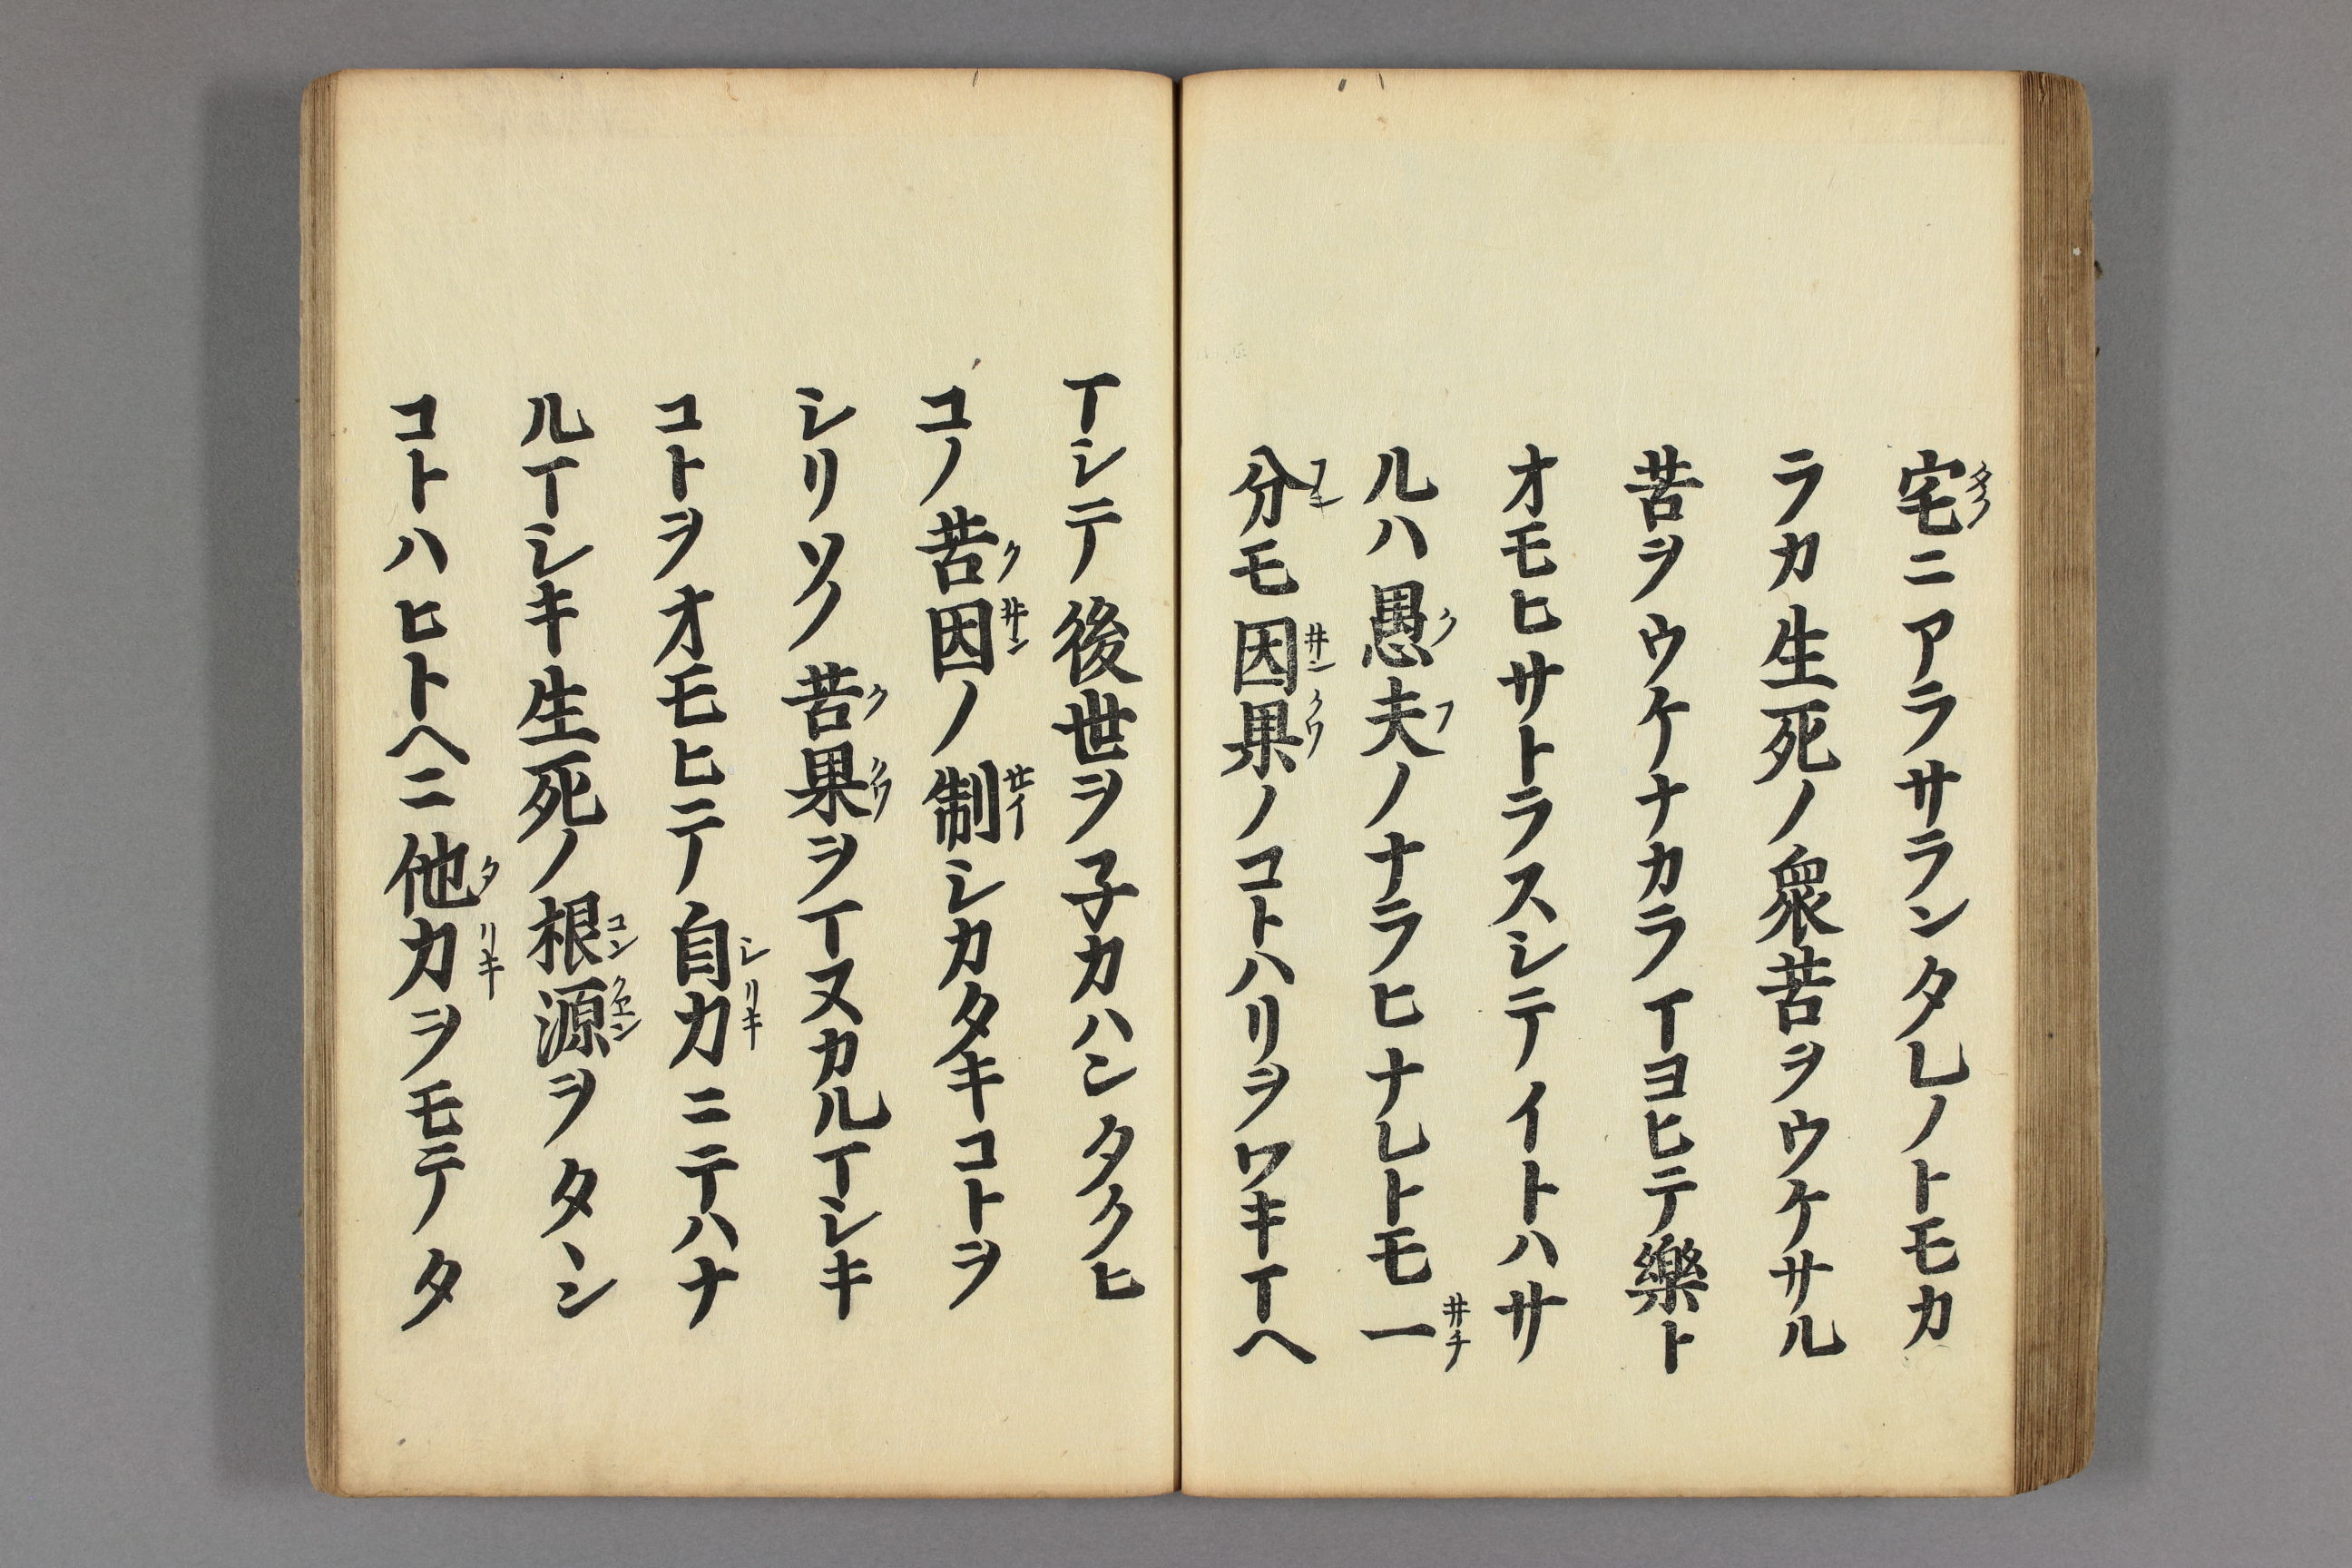 宅ニアラサランタレノトモカ
タク
ラカ生死ノ衆苦ヲウケサル
苦ヲウケナカラマヨヒテ樂ト
オモヒサトラスシテイトハサ
ルハ愚夫ノナラヒナレトモ一
クフ ヰチ
分モ因果ノコトハリヲワキマヘ
フン ヰンクワ
マシテ後世ヲ子カハンタクヒ
コノ苦因ノ制シカタキコトヲ
クヰン セイ
シリソノ苦果ヲマヌカルマシキ
ククワ
コトヲオモヒテ自力ニテハナ
シリキ
ルマシキ生死ノ根源ヲタヽン
コンクヱン
コトハヒトヘニ他力ヲモテタ
タリキ